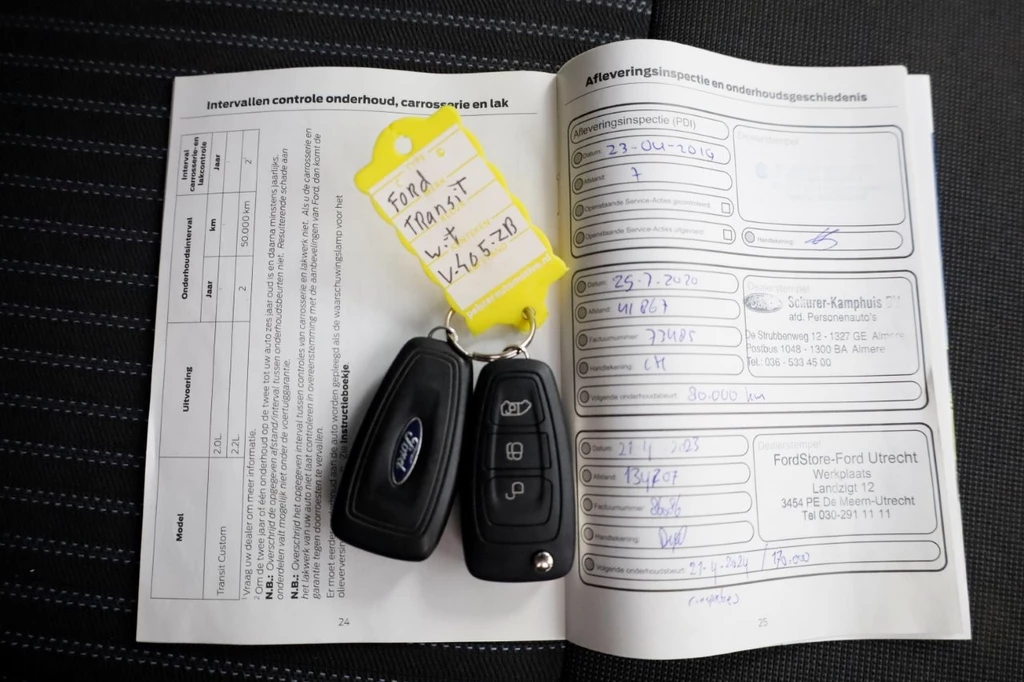 Intervallen controle onderhoud, carrosserie en lak
Model
Uitvoering
Onderhoudsinterval
Interval carrosserie- en lakcontrole
Jaar
km
Jaar
Transit Custom
2.0L
2.2L
2
50.000 km
2
¹ Vraag uw dealer om meer informatie.
² Om de twee jaar of één onderhoud op de twee tot uw auto zes jaar oud is en daarna minstens jaarlijks.
N.B.: Overschrijd de opgegeven afstand/interval tussen onderhoudsbeurten niet. Resulterende schade aan
onderdelen valt mogelijk niet onder de voertuiggarantie.
N.B.: Overschrijd het opgegeven interval tussen controles van carrosserie en lakwerk niet. Als u de carrosserie en
het lakwerk van uw auto niet laat controleren in overeenstemming met de aanbevelingen van Ford, dan komt de
garantie tegen doorroesten te vervallen.
Er moet eerder aan de auto worden gepleegd als de waarschuwingslamp voor het
Instructieboekje.
24
Ford
Transit
wit
V-405-ZB
Ford
Afleveringsinspectie en onderhoudsgeschiedenis
Afleveringsinspectie (PDI)
Datum: 23-04-2019
Afstand: 7
Openstaande Service-Acties gecontroleerd:
Openstaande Service-Acties uitgevoerd:
Dealerstempel
Handtekening:
Datum: 29-7-2020
Afstand: 41867
Factuurnummer: 73485
Handtekening:
Volgende onderhoudsbeurt: 80.000 km
Dealerstempel
Scherer-Kamphuis BV
afd. Personenauto's
De Strubbenweg 12 - 1327 GE Almere
Postbus 1048 - 1300 BA Almere
Tel.: 036 - 533 45 00
Datum: 21-4-2023
Afstand: 134207
Factuurnummer:
Handtekening:
Volgende onderhoudsbeurt: 21-4-2024 / 170.000
Dealerstempel
FordStore-Ford Utrecht
Werkplaats
Landzigt 12
3454 PE De Meern-Utrecht
Tel 030-291 11 11
25